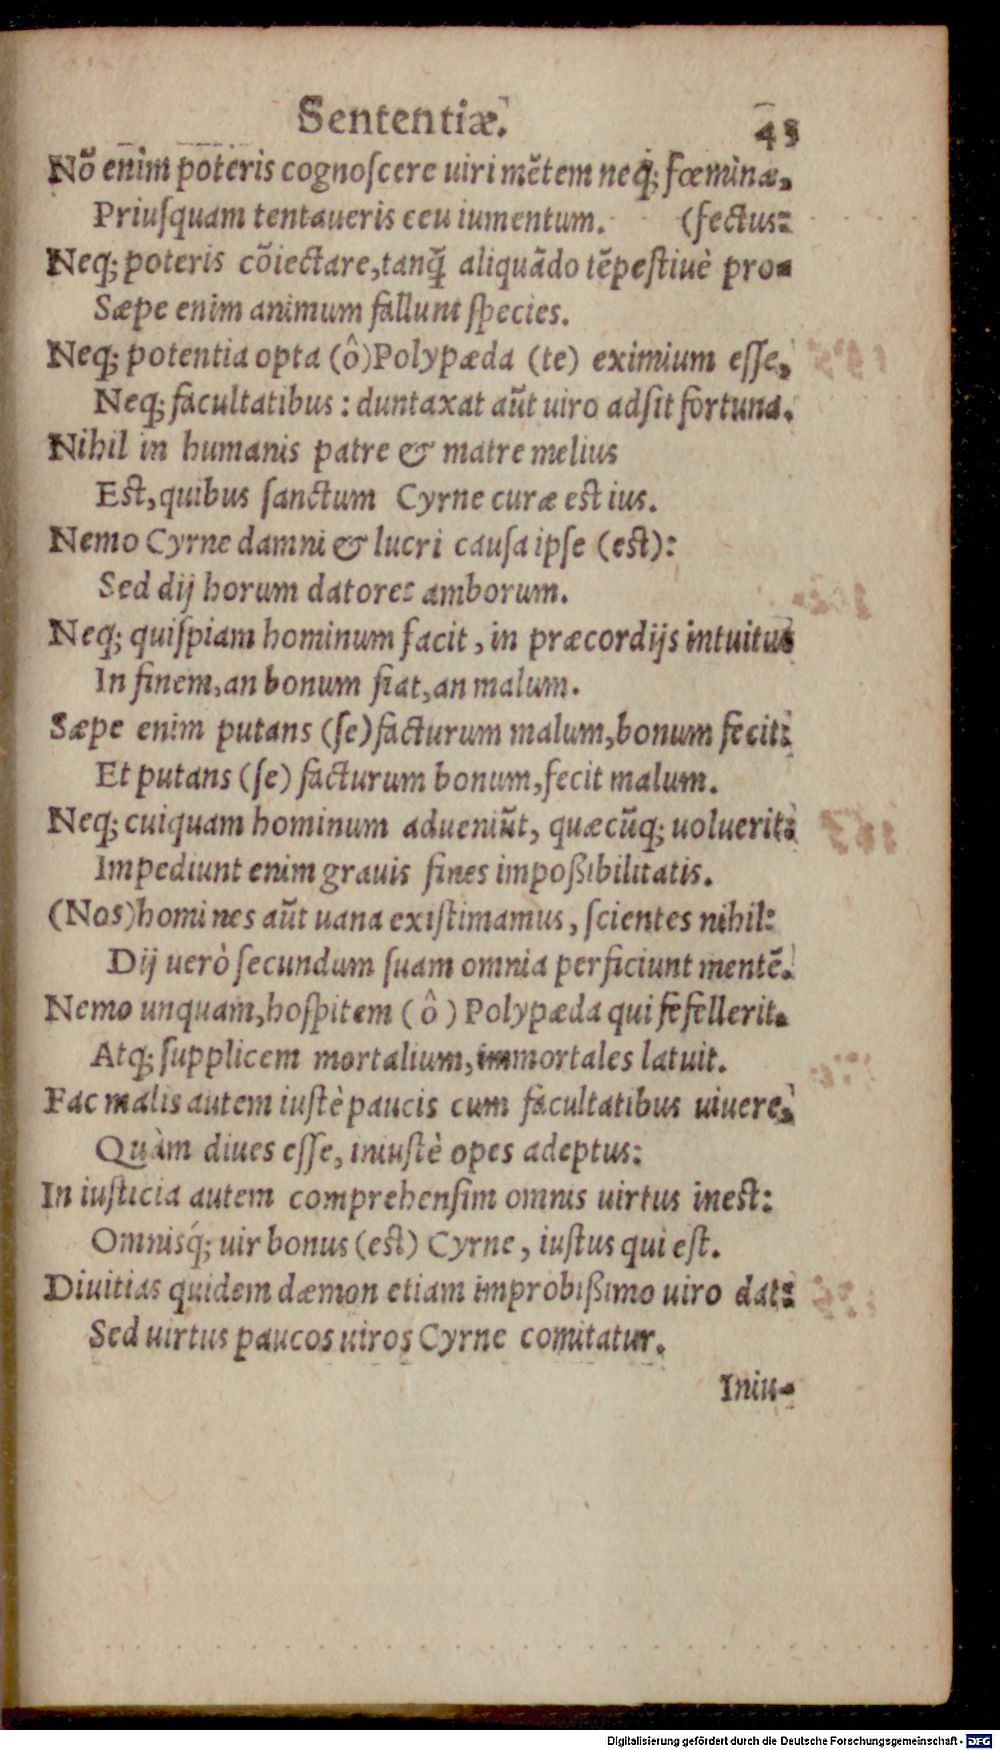 Sententiæ. 43
Nõ enim poteris cognoſcere uiri mẽtem neq́; fœminæ,
Priuſquam tentaueris ceu iumentum. (fectus:
Neq; poteris cõiectare, tanq̃ aliquãdo tẽpeſtiuè pro-
Sæpe enim animum fallunt ſpecies.
Neq; potentia opta (ô) Polypæda (te) eximium eſſe,
Neq; facultatibus: duntaxat aũt uiro adſit fortuna.
Nihil in humanis patre & matre melius
Eſt, quibus ſanctum Cyrne curæ eſt ius.
Nemo Cyrne damni & lucri cauſa ipſe (eſt):
Sed dij horum datores amborum.
Neq; quiſpiam hominum facit, in præcordijs intuitus
In finem, an bonum fiat, an malum.
Sæpe enim putans (ſe) facturum malum, bonum fecit:
Et putans (ſe) facturum bonum, fecit malum.
Neq; cuiquam hominum adueniũt, quæcũq; uoluerit:
Impediunt enim grauis fines impoßibilitatis.
(Nos) homines aũt uana exiſtimamus, ſcientes nihil:
Dij uerò ſecundum ſuam omnia perficiunt mentẽ.
Nemo unquam, hoſpitem (ô) Polypæda qui fefellerit.
Atq; ſupplicem mortalium, immortales latuit.
Fac malis autem iuſtè paucis cum facultatibus uiuere,
Quàm diues eſſe, iniuſtè opes adeptus:
In iuſticia autem comprehenſim omnis uirtus ineſt:
Omnisq́; uir bonus (eſt) Cyrne, iuſtus qui eſt.
Diuitias quidem dæmon etiam improbißimo uiro dat:
Sed uirtus paucos uiros Cyrne comitatur.
Iniu-
Digitalisierung gefördert durch die Deutsche Forschungsgemeinschaft - DFG